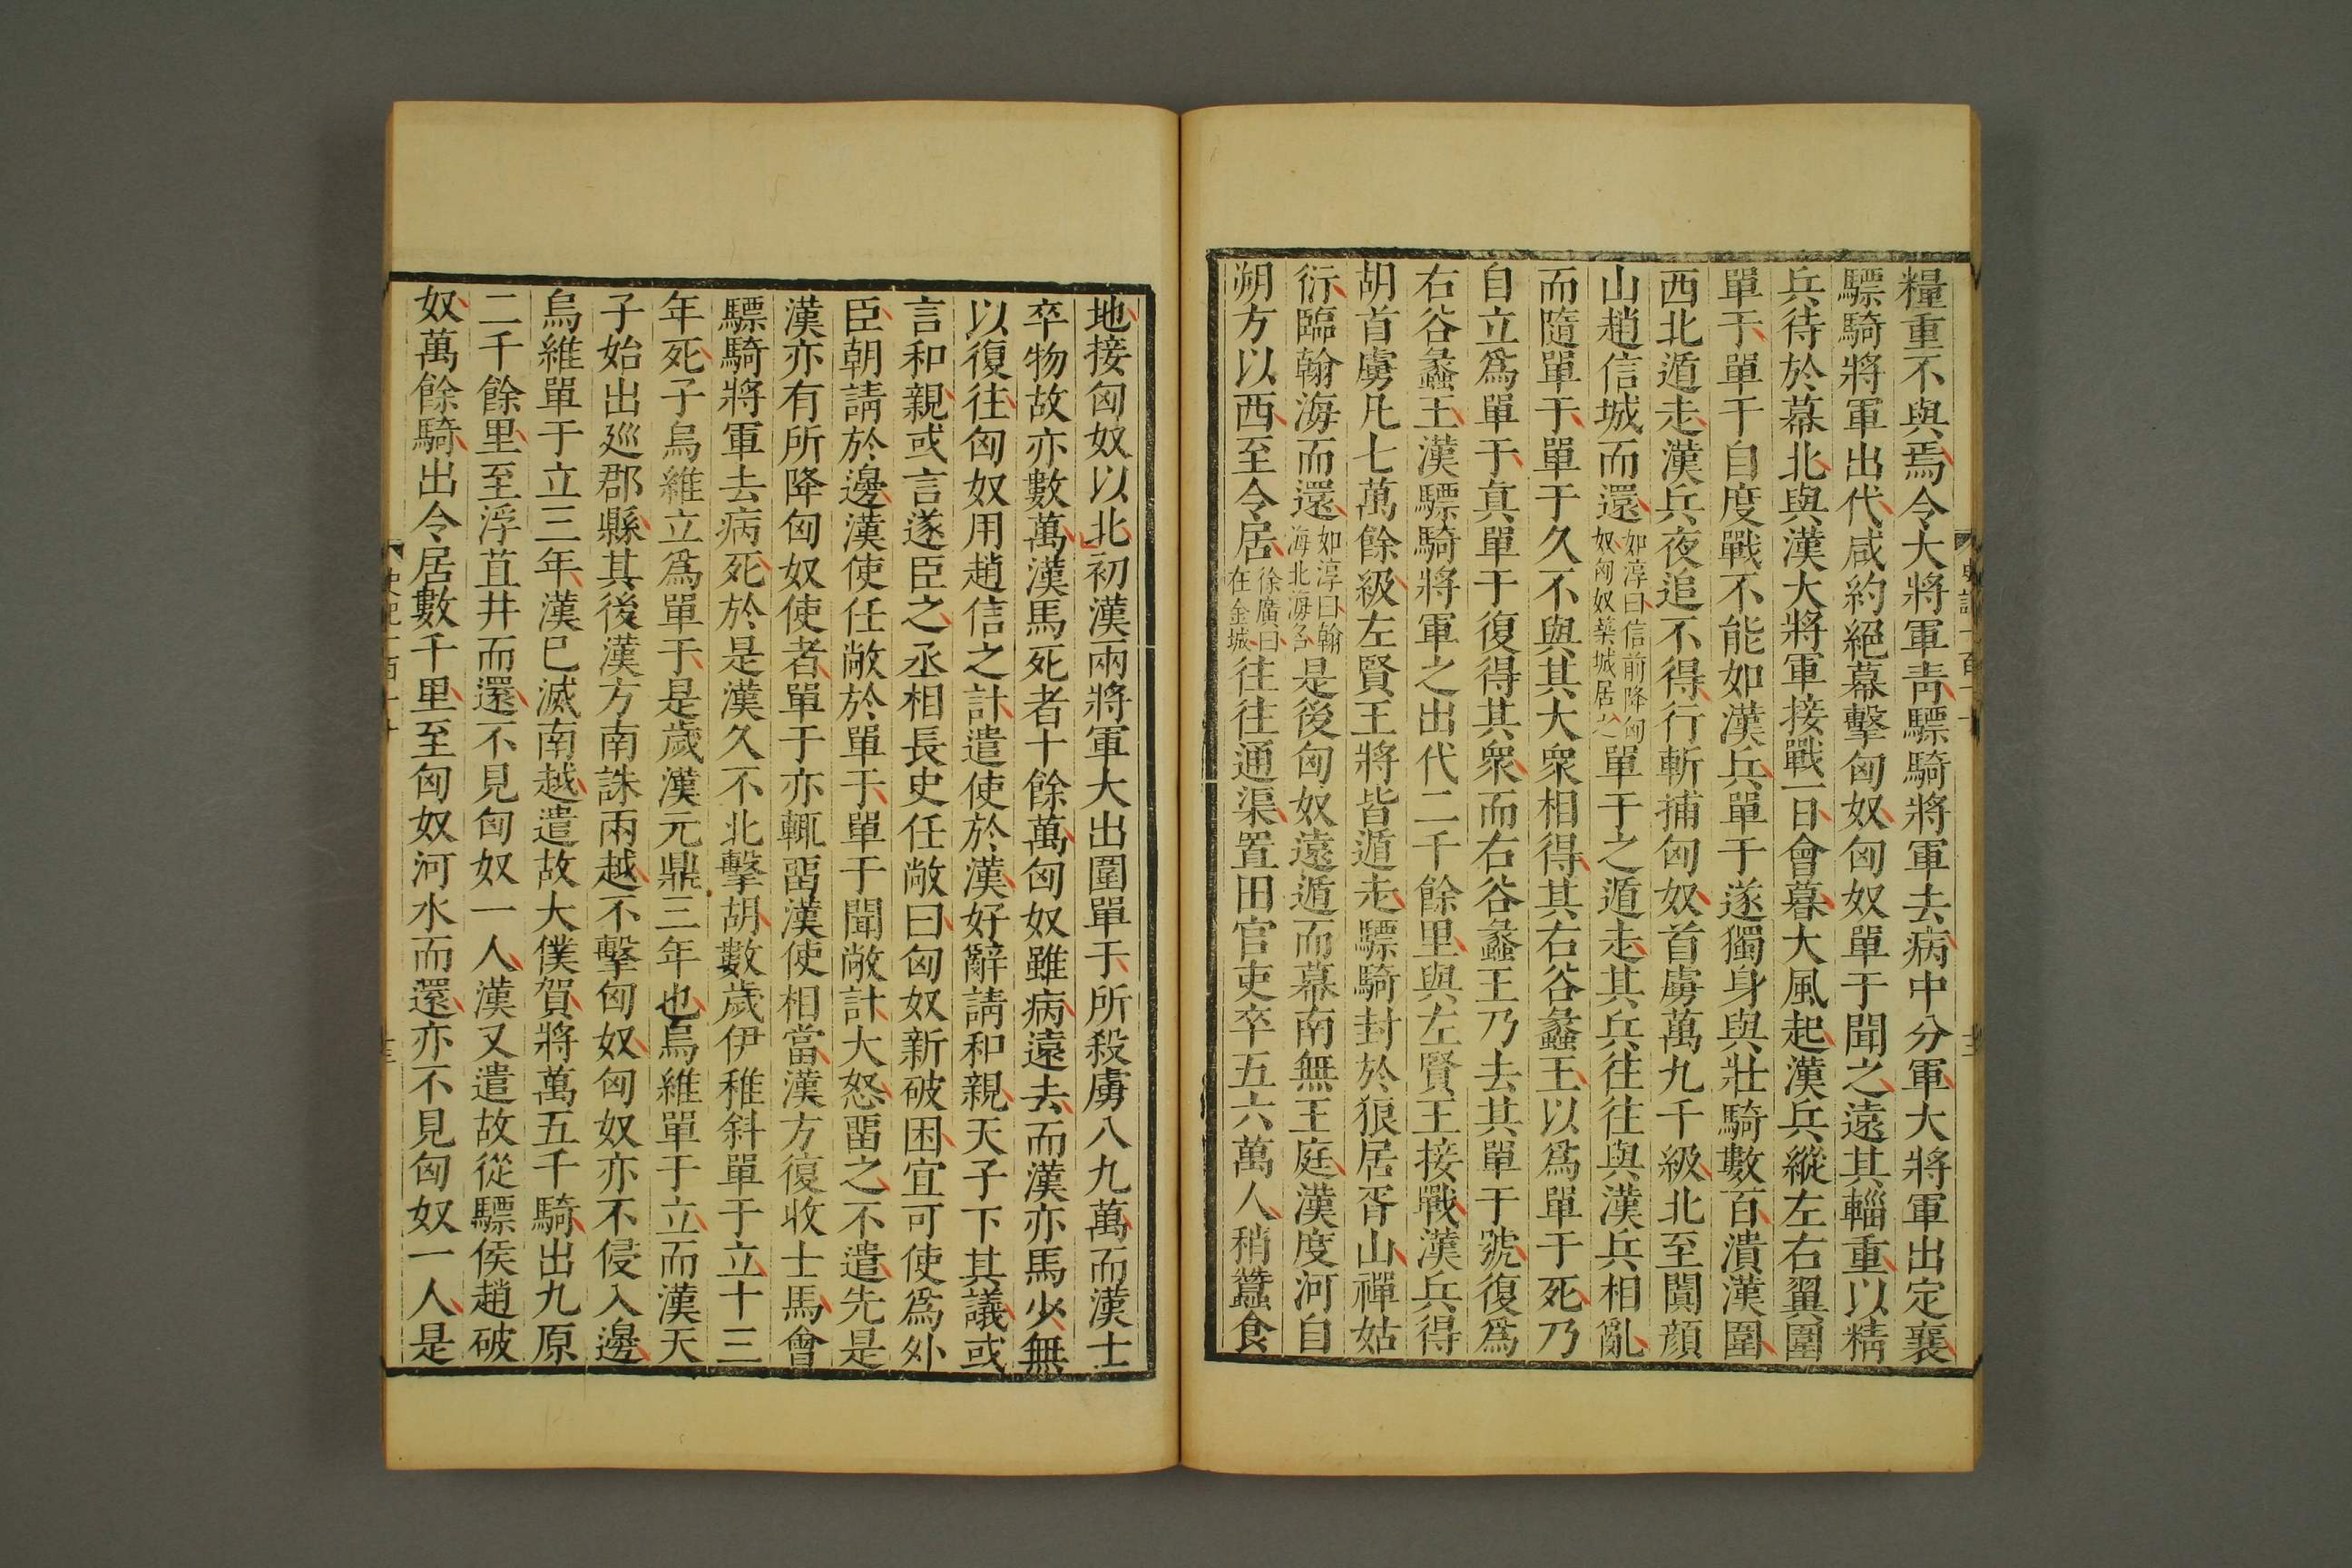 糧重不與焉令大將軍青驃騎將軍去病中分軍大將軍出定襄
驃騎將軍出代咸約絕幕擊匈奴匈奴單于聞之遠其輜重以精
兵待於幕北與漢大將軍接戰一日會暮大風起漢兵縱左右翼圍
單于單于自度戰不能如漢兵單于遂獨身與壯騎數百潰漢圍
西北遁走漢兵夜追不得行斬捕匈奴首虜萬九千級北至闐顔
山趙信城而還如淳曰信前降匈奴匈奴築城居之單于之遁走其兵往往與漢兵相亂
而隨單于單于久不與其大衆相得其右谷蠡王以爲單于死乃
自立爲單于真單于復得其衆而右谷蠡王乃去其單于號復爲
右谷蠡王漢驃騎將軍之出代二千餘里與左賢王接戰漢兵得
胡首虜凡七萬餘級左賢王將皆遁走驃騎封於狼居胥山禪姑
衍臨翰海而還如淳曰翰海北海名是後匈奴遠遁而幕南無王庭漢度河自
朔方以西至令居徐廣曰在金城往往通渠置田官吏卒五六萬人稍蠶食
地接匈奴以北初漢兩將軍大出圍單于所殺虜八九萬而漢士
卒物故亦數萬漢馬死者十餘萬匈奴雖病遠去而漢亦馬少無
以復往匈奴用趙信之計遣使於漢好辭請和親天子下其議或
言和親或言遂臣之丞相長史任敞曰匈奴新破困宜可使爲外
臣朝請於邊漢使任敞於單于單于聞敞計大怒畱之不遣先是
漢亦有所降匈奴使者單于亦輒畱漢使相當漢方復收士馬會
驃騎將軍去病死於是漢久不北擊胡數歲伊稚斜單于立十三
年死子烏維立爲單于是歲漢元鼎三年也烏維單于立而漢天
子始出廵郡縣其後漢方南誅兩越不擊匈奴匈奴亦不侵入邊
烏維單于立三年漢已滅南越遣故大僕賀將萬五千騎出九原
二千餘里至浮苴井而還不見匈奴一人漢又遣故從驃侯趙破
奴萬餘騎出令居數千里至匈奴河水而還亦不見匈奴一人是